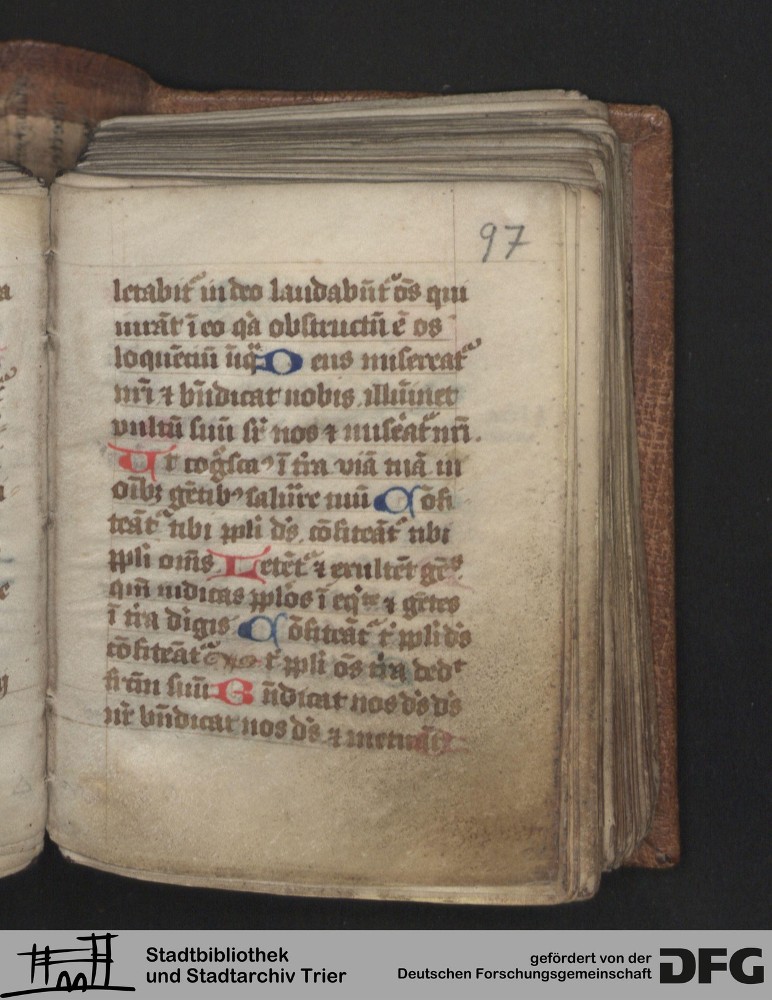 97
letabit᷑ in deo laudabūt᷑ oēs qui
iurāt ī eo qa obstructū ē os
loquēciū īiq᷑ Deus misereat᷑
nrī ⁊ bn̄dicat nobis illūinet
vultū suū sr̄ nos ⁊ misēat᷑ nrī.
Ut cog̃scaꝰ ī tr̄a viā tuā in
oībꝫ gētibꝰ salutre tuū Cōfi
teāt᷑ tibi ppl̄i ds̄ cōfiteāt᷑ tibi
ppl̄i om̄s Letēt᷑ ⁊ exultēt gētes
qm̄ iudicas ppl̄os ī eq̇te ⁊ gētes
ī tr̄a dirigis Cōfiteāt᷑ t̄ ppl̄i ds̄
cōfiteāt᷑ t̄ ppl̄i oēs tr̄a dedt
fructū suū Bn̄dicat nos ds̄ ds̄
nr̄ bn̄dicat nos ds̄ ⁊ metuāt
Stadtbibliothek
und Stadtarchiv Trier
gefördert von der
Deutschen Forschungsgemeinschaft
DFG